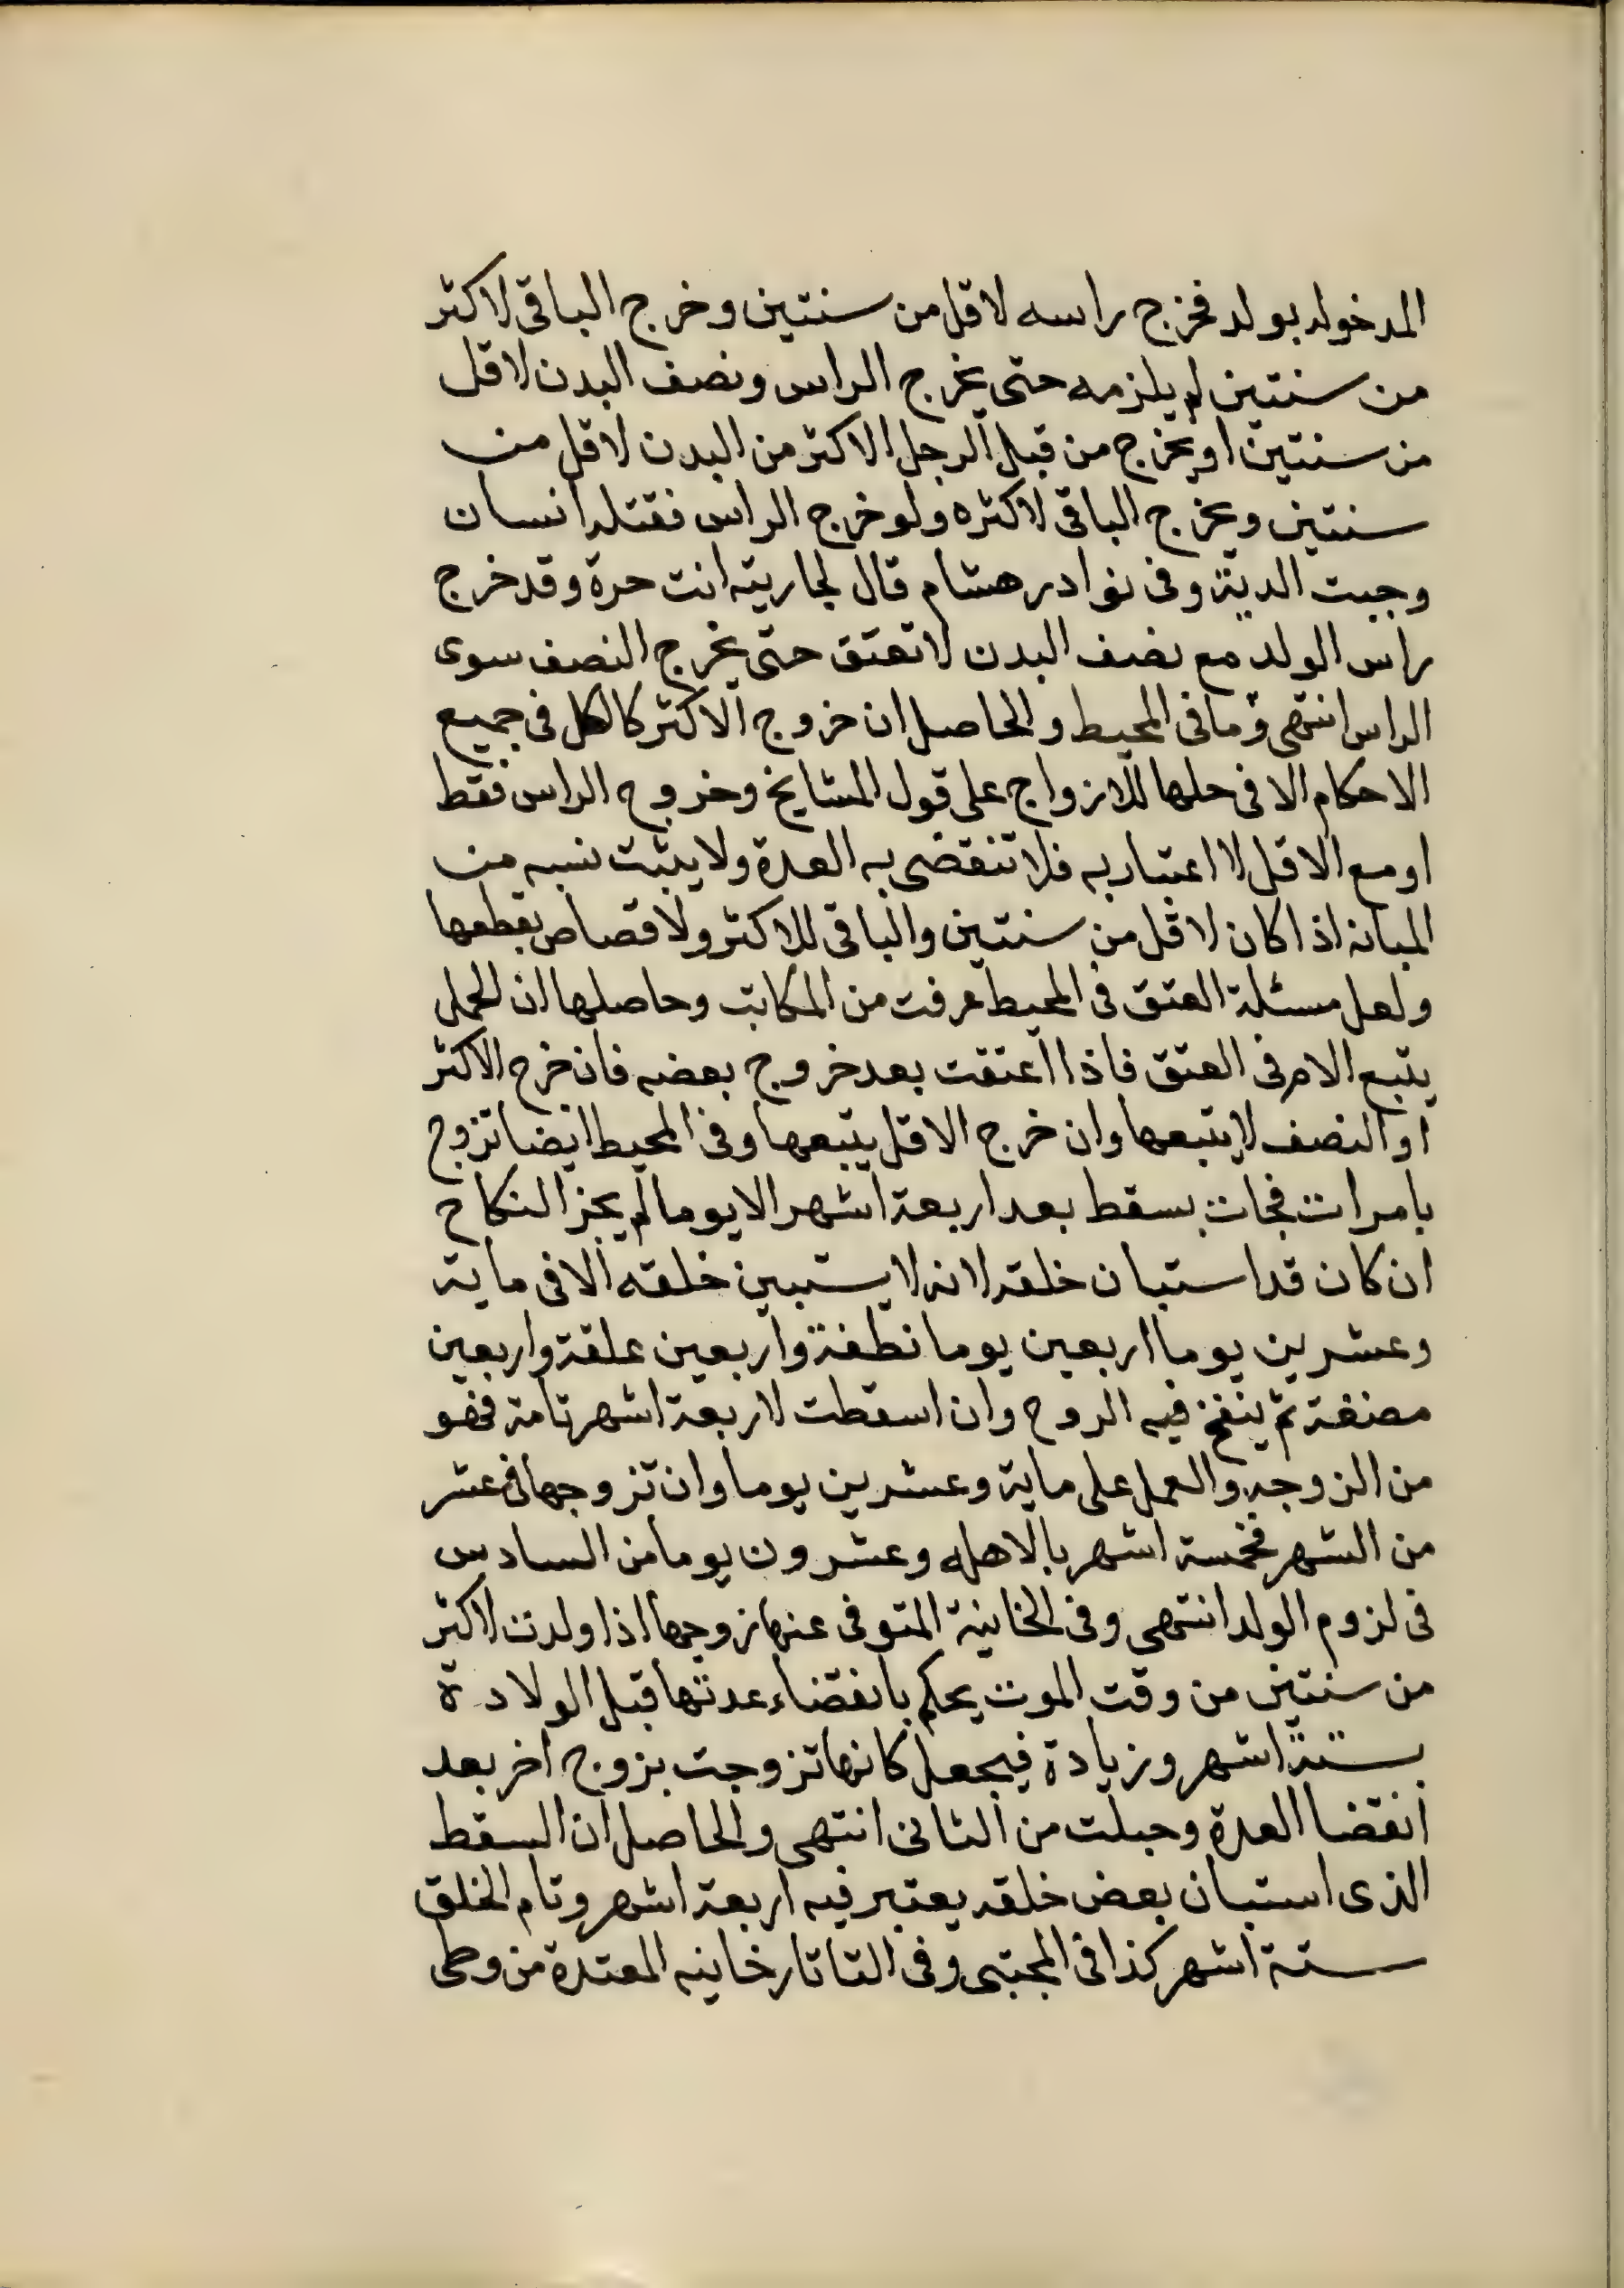 المدخولة بولد فخرج راسه لاقل من سنتين وخرج الباقى لاكثر
من سنتين لم يلزمه حتى يخرج الراس ونصف البدن لاقل
من سنتين او يخرج من قبل الرجل الاكثر من البدن لاقل من
سنتين ويخرج الباقى لاكثره ولو خرج الراس فقتله انسان
وجبت الدية وفى نوادر هشام قال لجاريته انت حرة وقد خرج
راس الولد مع نصف البدن لا تعتق حتى يخرج النصف سوى
الراس انتهى وما فى المحيط والحاصل ان خروج الاكثر كالكل فى جميع
الاحكام الا فى حلها للازواج على قول المشايخ وخروج الراس فقط
او مع الاقل لا اعتبار به فلا تنقضى به العدة ولا يثبت نسبه من
المبانه اذا كان لاقل من سنتين والباقى للاكثر ولا قصاص بقطعها
ولعل مسئلة العتق فى المحيط عرفت من المكاتب وحاصلها ان الحمل
يتبع الام فى العتق فاذا اعتقت بعد خروج بعضه فان خرج الاكثر
او النصف لا يتبعها وان خرج الاقل يتبعها وفى المحيط ايضا تزوج
بامرات فجات بسقط بعد اربعة اشهر الا يوما لم يجز النكاح
ان كان قد استبان خلقه لانه لا يستبين خلقه الا فى ماية
وعشرين يوما اربعين يوما نطفة واربعين علقة واربعين
مضغة ثم ينفخ فيه الروح وان اسقطت لاربعة اشهر تامة فهو
من الزوجه والعمل على ماية وعشرين يوما وان تزوجها فى عشر
من الشهر فخمسة اشهر بالاهله وعشرون يوما من السادس
فى لزوم الولد انتهى وفى الخانية المتوفى عنها زوجها اذا ولدت لاكثر
من سنتين من وقت الموت يحكم بانقضاء عدتها قبل الولادة
بستة اشهر وزيادة فيجعل كانها تزوجت بزوج اخر بعد
انقضا العدة وحبلت من الثانى انتهى والحاصل ان السقط
الذى استبان بعض خلقه يعتبر فيه اربعة اشهر وتام الخلق
ستة اشهر كذا فى المجتبى وفى التاتارخانيه المعتدة من وطى